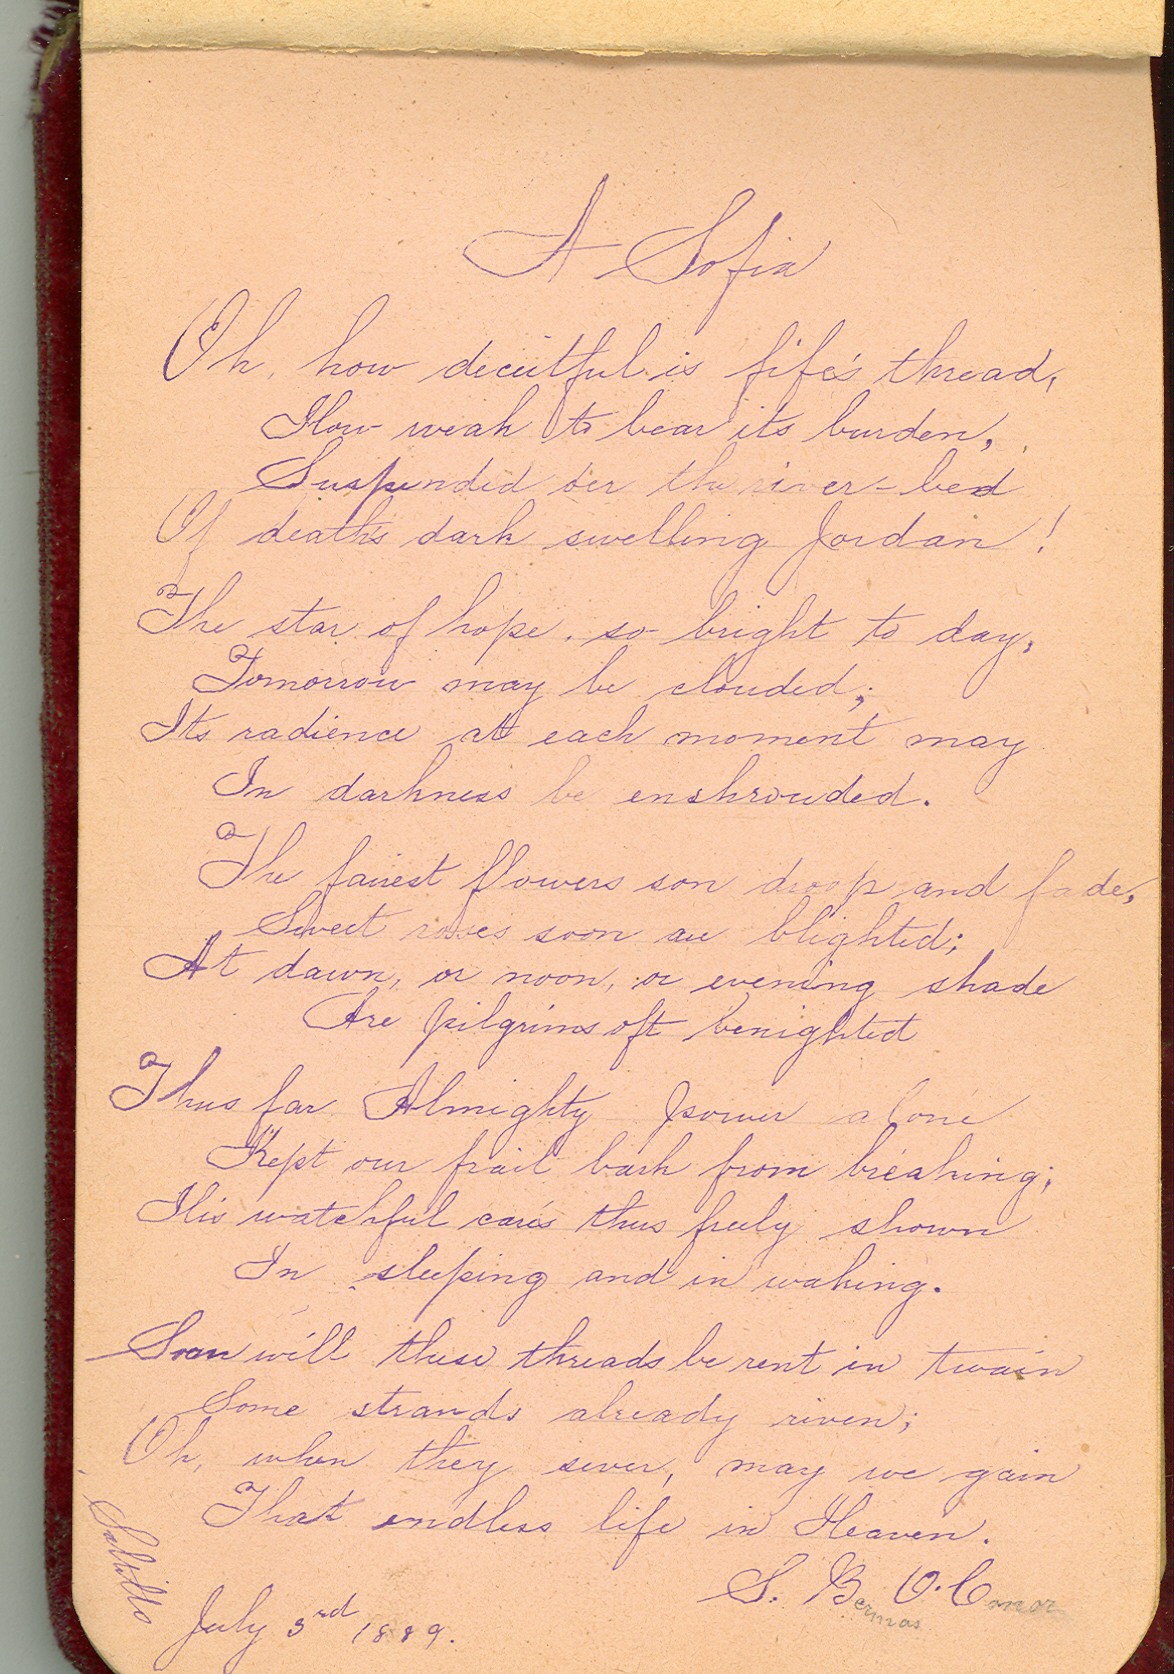 A Sofia
Oh, how deceitful is life's thread,
How weak to bear its burden,
Suspended o'er the river-bed
Of death's dark swelling Jordan!
The star of hope, so bright to day,
Tomorrow may be clouded;
Its radience at each moment may
In darkness be enshrouded.
The fairest flowers son droop and fade,
Sweet roses soon are blighted;
At dawn, or noon, or evening shade
Are pilgrims oft benighted
Thus far Almighty power alone
Kept our frail bark from breaking;
His watchful care's thus freely shown
In sleeping and in waking.
Soon will these threads be rent in twain
Some strands already riven;
Oh, when they sever, may we gain
That endless life in Heaven.
S. Bermas O.Conor
Saltillo
July 3rd 1889.